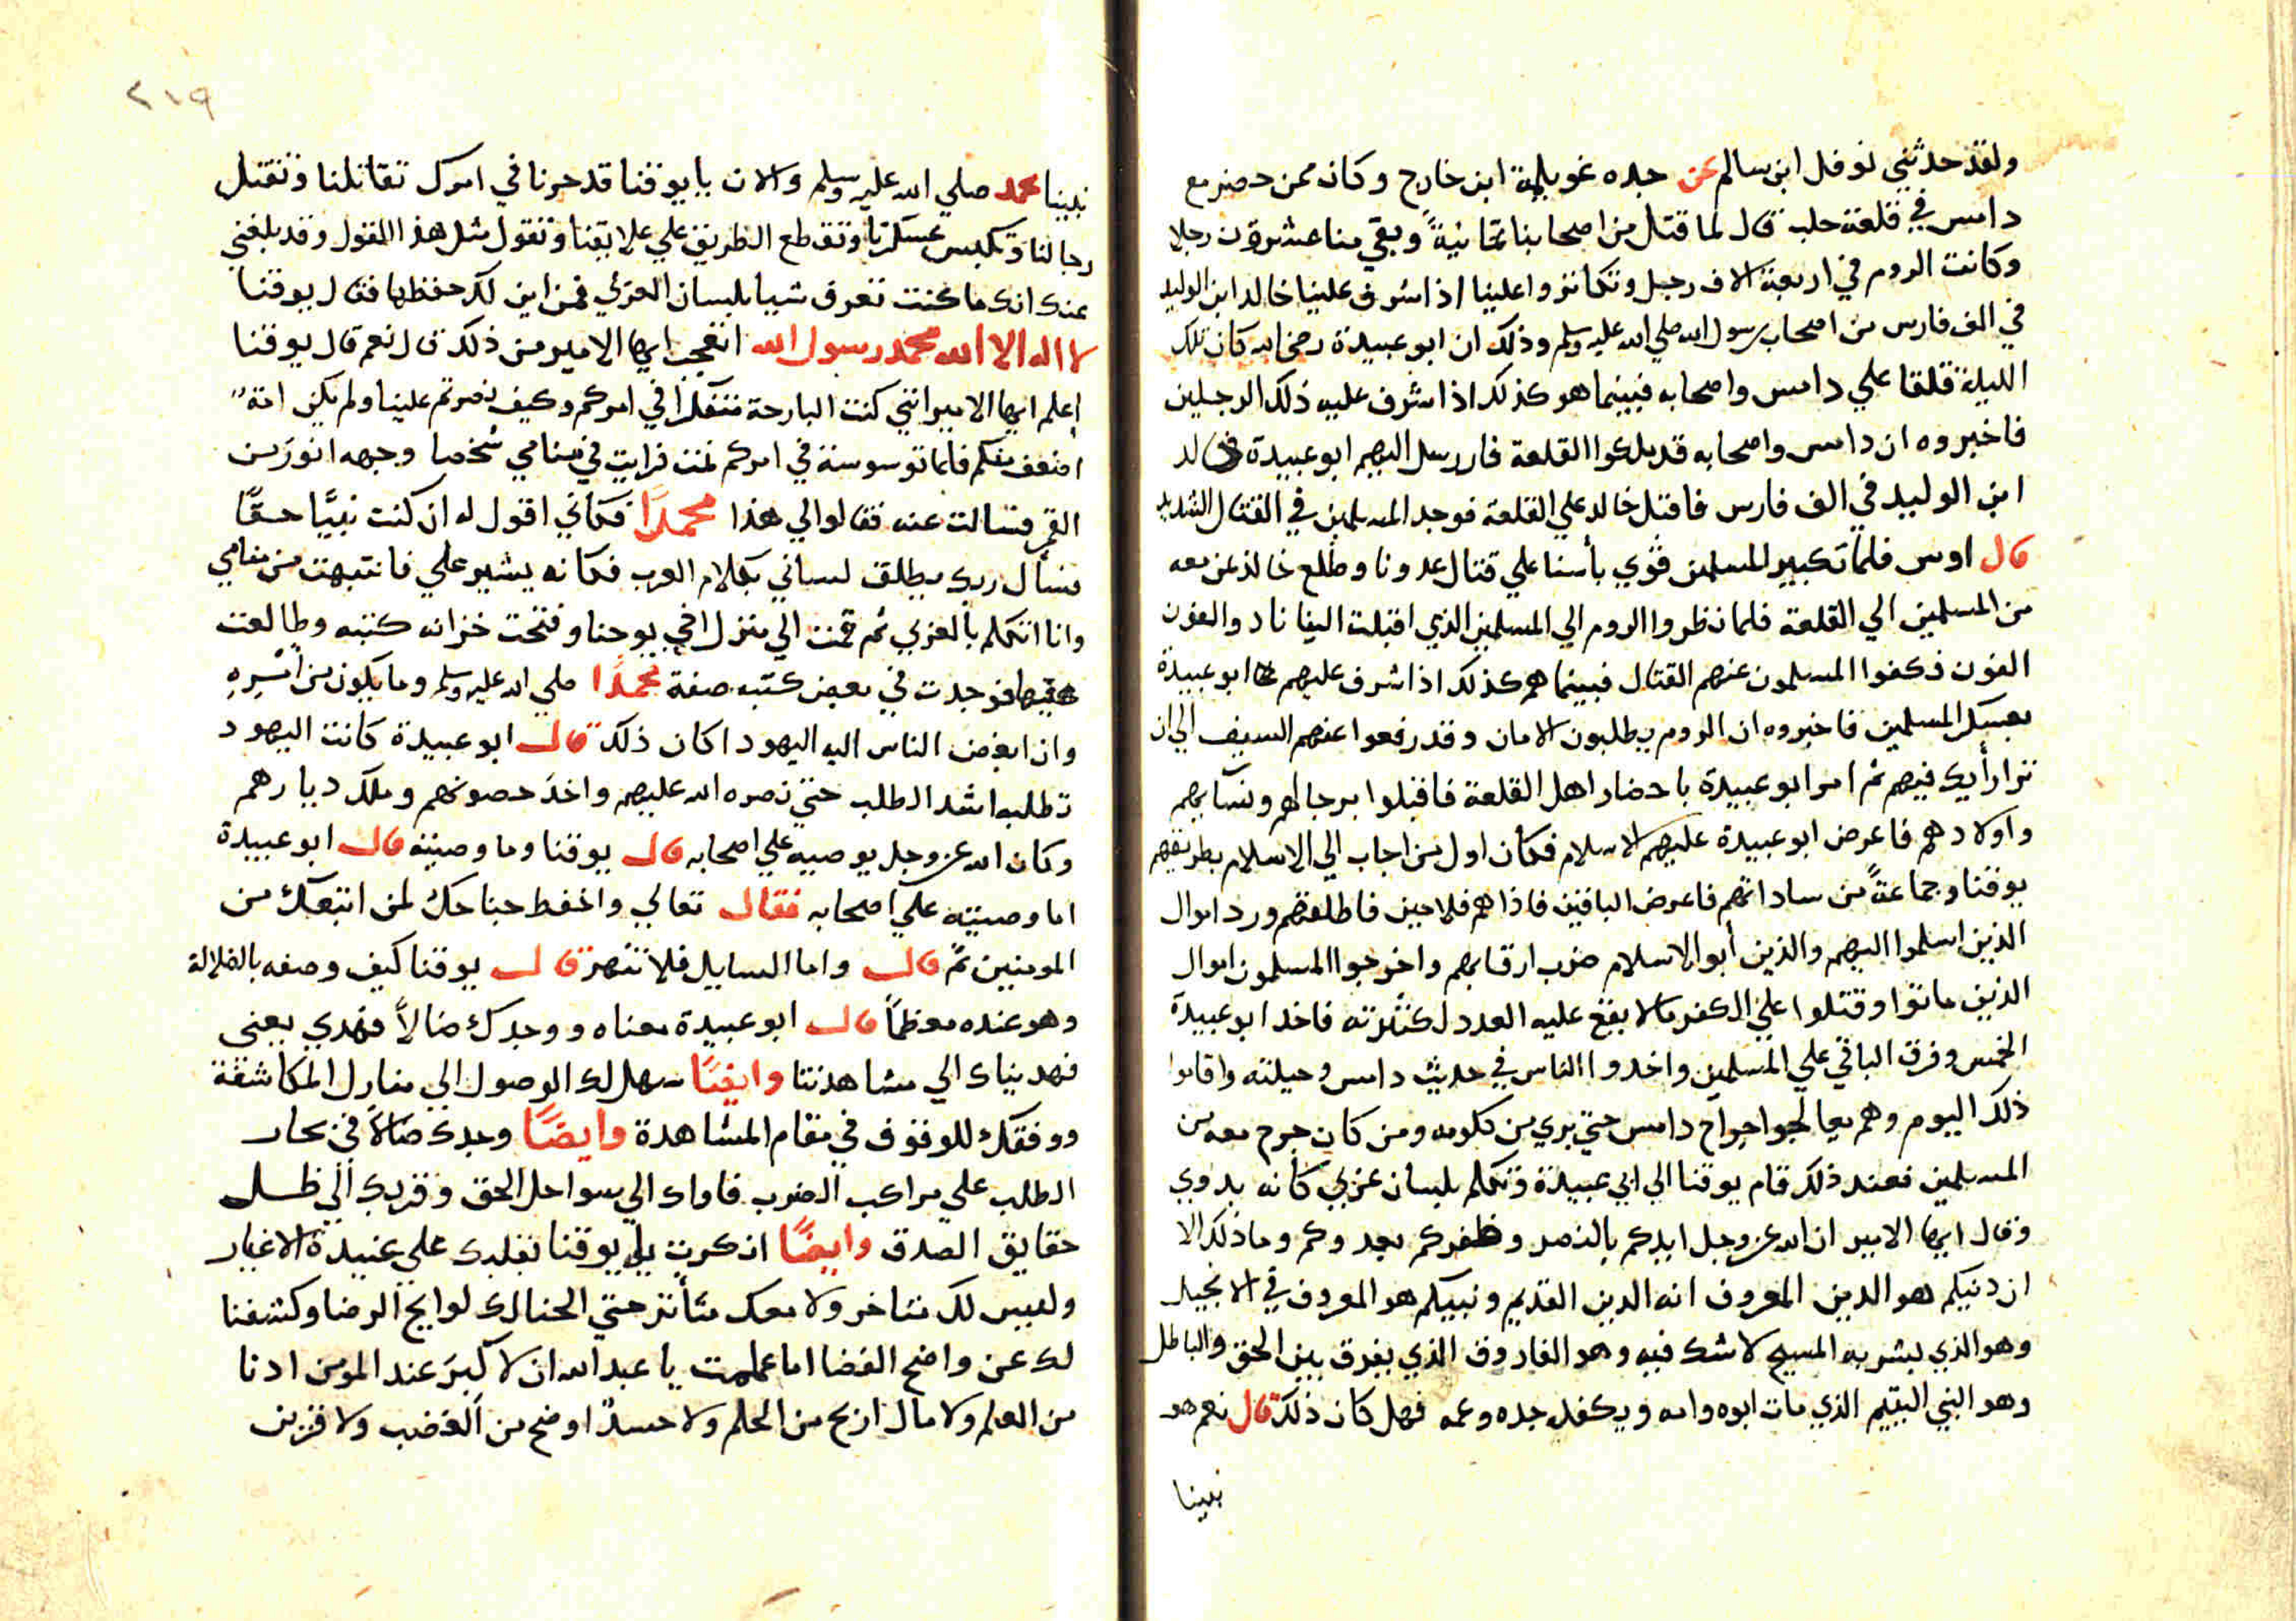 ولقد حدثني نوفل ابن سالم عن جده غويلم ابن خارج وكان ممن حضر مع
دامس في قلعة حلب قال لما قتل من اصحابنا ثمانيةً وبقي منا عشرون رجلا
وكانت الروم في اربعة الاف رجل وتكاثروا علينا اذا شرف علينا خالد ابن الوليد
في الف فارس من اصحاب رسول الله صلي الله عليه وسلم وذلك ان ابو عبيدة رضي الله كان تلك
الليلة قلقا علي دامس واصحابه فبينما هو كذلك اذا شرف عليه ذلك الرجلين
فاخبروه ان دامس واصحابه قد بلغوا القلعة فارسل اليهم ابو عبيدة خالد
ابن الوليد في الف فارس فاقبل خالد علي القلعة فوجد المسلمين في القتال الشديد
قال اوس فلما تكبير المسلمين قوي بأسنا علي قتال عدونا وطلع خالد عن معه
من المسلمين الي القلعة فلما نظروا الروم الي المسلمين الذي اقبلت الينا نادوا الغون
الغون فكفوا المسلمون عنهم القتال فبينما هم كذلك اذا شرف عليهم ابو عبيدة
بعسكر المسلمين فاخبروه ان الروم يطلبون الامان وقد رفعوا عنهم السيف الي ان
ترا رأيك فيهم ثم امر ابو عبيدة باحضار اهل القلعة فاقبلوا برجالهم ونسآيهم
واولادهم فاعرض ابو عبيدة عليهم الاسلام فكان اول من اجاب الي الاسلام بطريقهم
يوقنا وجماعةً من ساداتهم فاعرض الباقين فاذا هم فلاحين فاطلقهم ورد اموال
الذين اسلموا اليهم والذين أبوا الاسلام ضرب ارقابهم واخرجوا المسلمون اموال
الذين ماتوا وقتلوا علي الكفر مالا يقع عليه العدد لكثرته فاخد ابو عبيدة
الخمس وفرق الباقي علي المسلمين واخدوا الناس في حديث دامس وحيلته واقاموا
ذلك اليوم وهم يعالجوا جراح دامس حتي بري من كلومه ومن كان جرح معه من
المسلمين فعند ذلك قام يوقنا الي ابي عبيدة وتكلم بلسان عربي كانه بدوي
وقال ايها الامير ان الله عز وجل ايدكم بالنصر وظفركم بعدوكم وما ذلك الا
ان دنيكم هو الدين المعروف انه الدين القديم ونبيكم هو المعروف في الانجيل
وهو الذي بشر به المسيح لا شك فيه وهو الفاروق الذي يفرق بين الحق والباطل
وهو النبي اليتيم الذي مات ابوه وامه ويكفله جده وعمه فهل كان ذلك قال نعم هو
نبينا
٢١٩
نبينا محمد صلي الله عليه وسلم والان يا يوقنا قد حرنا في امرك تقاتلنا وتقتل
رجالنا وتكبس عسكرنا وتقطع الطريق علي علايقنا وتقول مثل هذا القول وقد بلغني
عنك انك ما كنت تعرف شيا بلسان العربي فمن اين لك حفظها فقال يوقنا
لا اله الا الله محمد رسول الله اتعجب ايها الامير من ذلك قال نعم قال يوقنا
اعلم ايها الامير انني كنت البارحة متفكرا في امركم وكيف نصرتم علينا ولم يكن امةً
اضعف منكم فلما توسوسة في امركم نمت فرايت في منامي شخصا وجهه انور من
القمر فسالت عنه فقالوا لي هذا محمداً فكاني اقول له ان كنت نبيًّا حقًّا
يسأل ربك يطلق لساني بكلام العرب فكانه يشير علي فانتبهت من منامي
وانا اتكلم بالعربي ثم قمت الي منزل اخي يوحنا وفتحت خزانه كتبه وطالعت
فيها فوجدت في بعض كتبه صفة محمداً صلي الله عليه وسلم وما يكون من أسيره
وان ابغض الناس اليه اليهود اكان ذلك قال ابو عبيدة كانت اليهود
تطلبه اشد الطلب حتي نصره الله عليهم واخذ حصونهم وملك ديارهم
وكان الله عز وجل يوصيه علي اصحابه قال يوقنا وما وصيته قال ابو عبيدة
اما وصيته علي اصحابه فقال تعالي واخفظ جناحك لمن اتبعك من
المومنين ثم قال واما السايل فلا تنهر قال يوقنا كيف وصفه بالضلالة
وهو عنده معظماً قال ابو عبيدة معناه ووجدك ضالاًّ فهدي يعني
فهديناك الي مشاهدتنا وايضًا سهل لك الوصول الي منازل المكاشفة
ووفقك للوقوف في مقام المشاهدة وايضًا وجدك ضالاً في بحار
الطلب علي مراكب الضرب فاواك الي سواحل الحق وقربك الي ظل
حقايق الصدق وايضًا ان كرت يا يوقنا تقلبك علي عنيدة الاغيار
وليس لك متاخر ولا معك متأثر حتي الحنالك لوايج الرضا وكشفنا
لك عن واضح الفضا اما علمت يا عبد الله ان لا كبرَ عند المومن ادنا
من العلم ولا مال اربح من الحلم ولا حسداً اوضح من الغضب ولا قرين